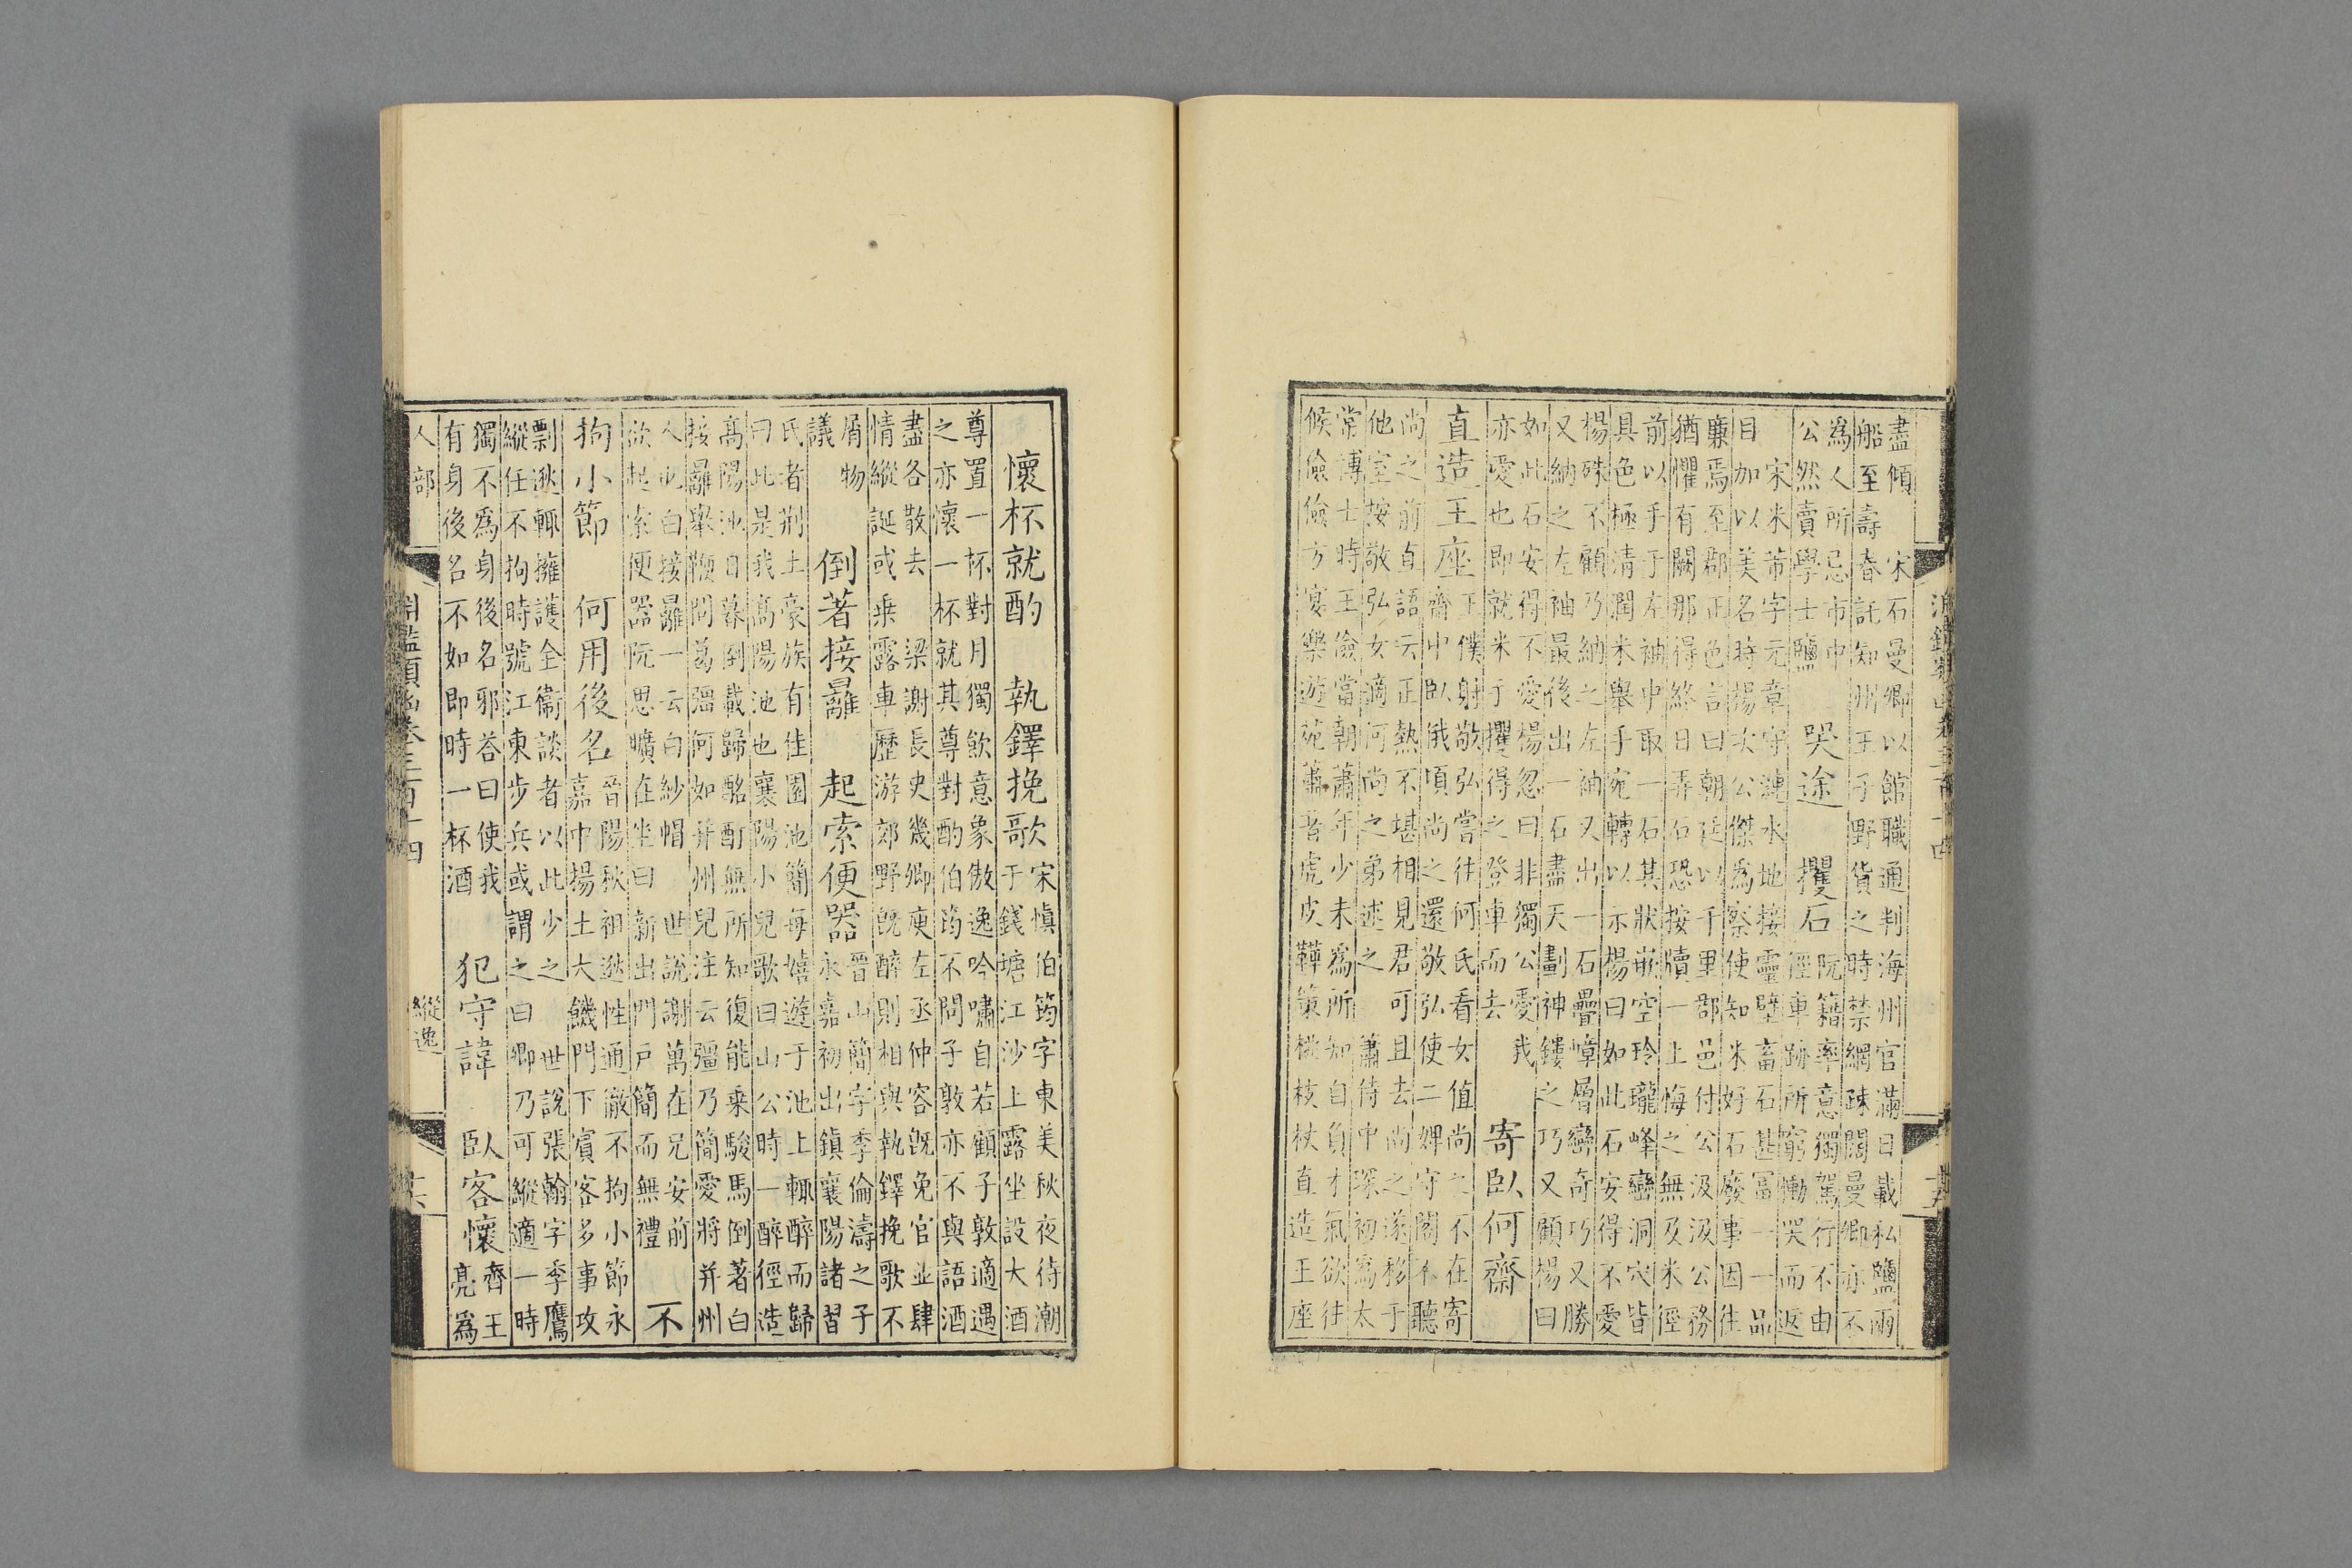 淵鑑類函卷三百十四
十五
盡傾　宋石曼卿以館職通判海州官滿日載私鹽兩
船至壽春託知州王子野貨之時禁網疎闊曼卿亦不
為人所忌市中
公然賣學士鹽
哭途　攫石
阮籍率意獨駕行不由
徑車跡所窮慟哭而返
宋米芾字元章守漣水地接靈壁畜石甚富一一品
目加以美名時揚次公傑為察使知米好石廢事因往
廉焉至郡正色言曰朝廷以千里郡邑付公汲汲公務
猶懼有闕那得終日弄石恐按牘一上悔之無及米徑
前以手于左袖中取一石其狀嵌空玲瓏峰巒洞穴皆
具色極清潤米舉手宛轉以示楊曰如此石安得不愛
楊殊不顧乃納之左袖又出一石疊嶂層巒奇巧又勝
又納之左袖最後出一石盡天劃神鏤之巧又顧楊曰
如此石安得不愛楊忽曰非獨公愛我
亦愛也即就米手攫得之登車而去
寄臥何齋
直造王座
王僕射敬弘嘗往何氏看女值尚之不在寄
齋中臥俄頃尚之還敬弘使二婢守閣不聽
尚之前直語云正熱不堪相見君可且去尚之遂移于
他室按敬弘女適何尚之弟述之　蕭侍中琛初為太
常博士時王儉當朝蕭年少未為所知自負才氣欲往
候儉儉方宴樂遊苑蕭著虎皮鞾策桃枝杖直造王座
懷杯就酌　執鐸挽歌
宋慎伯筠字東美秋夜待潮
于錢塘江沙上露坐設大酒
尊置一杯對月獨飲意象傲逸吟嘯自若顧子敦適遇
之亦懷一杯就其尊對酌伯筠不問子敦亦不與語酒
盡各散去　梁謝長史幾卿庾左丞仲容既免官並肆
情縱誕或乗露車歷游郊野既醉則相與執鐸挽歌不
屑物
議
倒著接䍦　起索便器
晉山簡字季倫濤之子
永嘉初出鎮襄陽諸習
氏者荆土豪族有佳園池簡每嬉遊于池上輒醉而歸
曰此是我高陽池也襄陽小兒歌曰山公時一醉徑造
高陽池日暮倒載歸酩酊無所知復能乗駿馬倒著白
接䍦舉鞭問葛彊何如并州兒注云彊乃簡愛將并州
人也白接䍦一云白紗帽　世說謝萬在兄安前
欲起索便器阮思曠在坐曰新出門戶簡而無禮
不
拘小節　何用後名
晉陽秋祖逖性通徹不拘小節永
嘉中揚土大饑門下賓客多事攻
剽逖輒擁護全衞談者以此少之　世說張翰字季鷹
縱任不拘時號江東步兵或謂之曰卿乃可縱適一時
獨不為身後名邪荅曰使我
有身後名不如即時一杯酒
犯守諱　臥客懷
齊王
亮為
人部
淵鑑類函卷三百十四
縱逸
十六